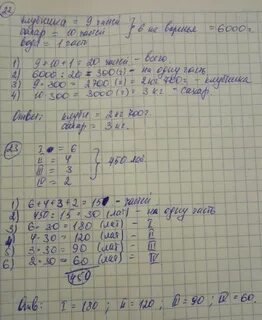 22
клубника = 9 частей
сахар = 10 частей } в не варенье = 6000г
вода = 1 часть
1) 9+10+1=20 частей - всего
2) 6000:20=300(г) - на одну часть
3) 9·300=2700(г)=2кг 700г - клубника
4) 10·300=3000(г)=3кг - сахар
Ответ: клубн = 2кг 700г.
сахар = 3кг.
23
I = 6
II = 4
III = 3
IV = 2
} 450 лат
1) 6+4+3+2=15 - частей
2) 450:15=30 (лат) - на одну часть
3) 6·30=180 (лат) - I
4) 4·30=120 (лат) - II
5) 3·30=90 (лат) - III
6) 2·30=60 (лат) - IV
450
Отв: I=180; II=120; III=90; IV=60.